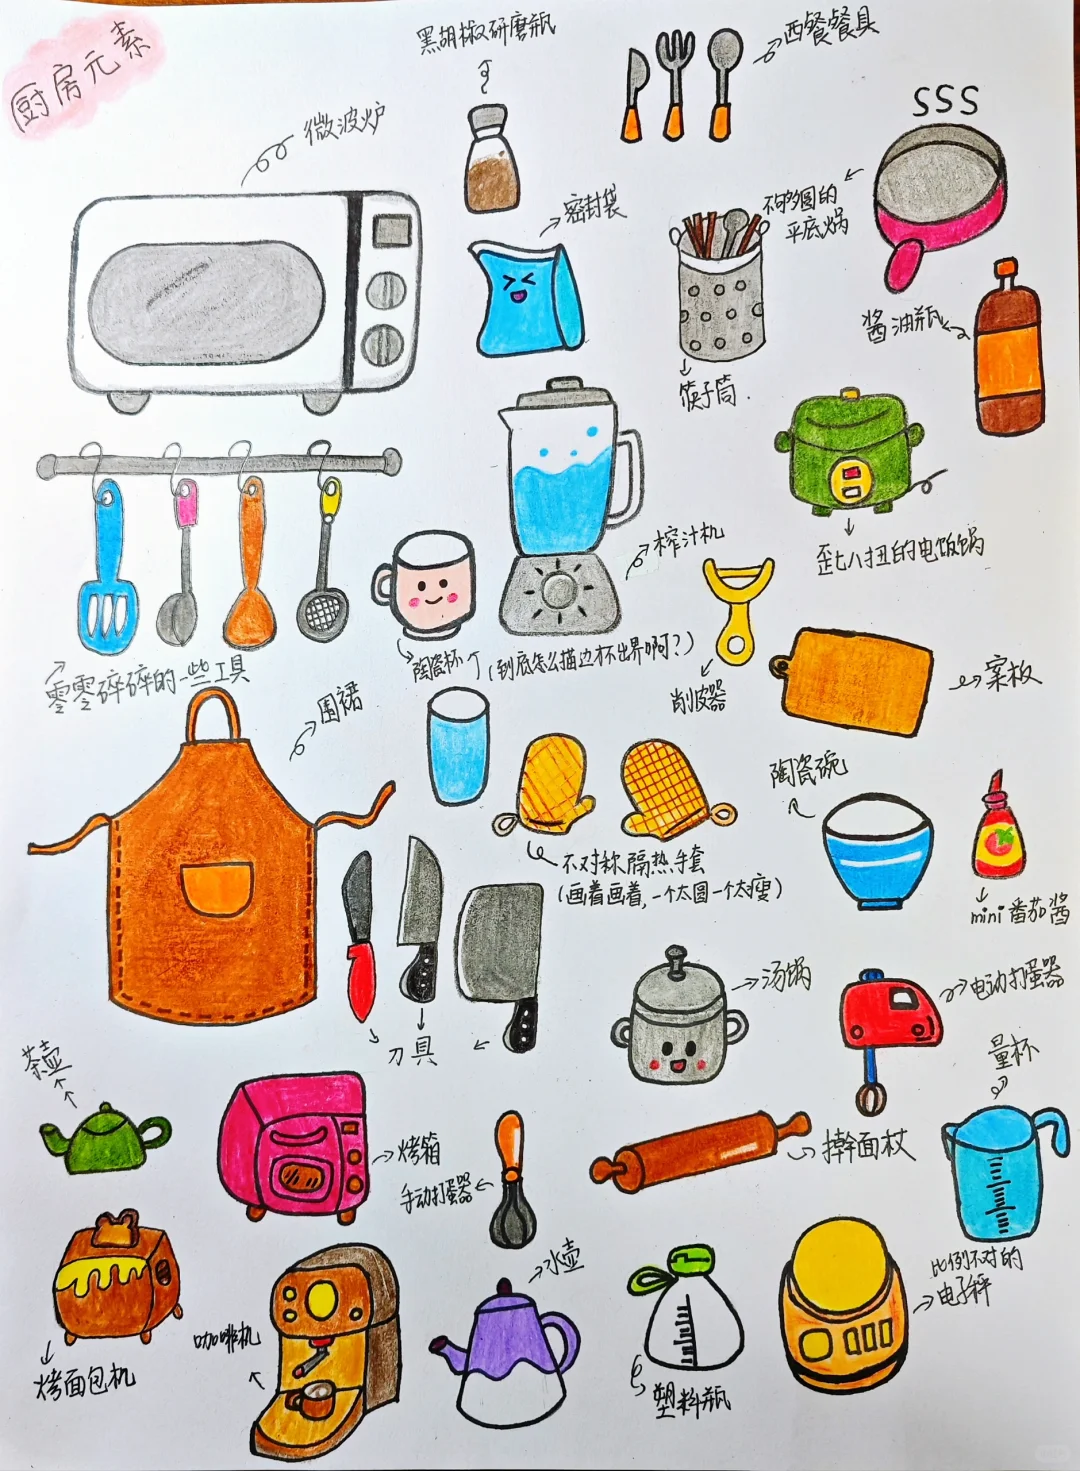 厨房元素
黑胡椒研磨瓶
西餐餐具
SSS
微波炉
密封袋
不够圆的
平底锅
酱油瓶
筷子筒.
榨汁机
歪七八扭的电饭锅
陶瓷杯
(到底怎么描边不出界啊?)
零零碎碎的一些工具
削皮器
案板
围裙
陶瓷碗
不对称隔热手套
(画着画着,一个太圆一个太瘦)
mini番茄酱
汤锅
电动打蛋器
刀具
量杯
茶壶
烤箱
擀面杖
手动打蛋器
水壶
比例不对的
电子秤
咖啡机
烤面包机
塑料瓶